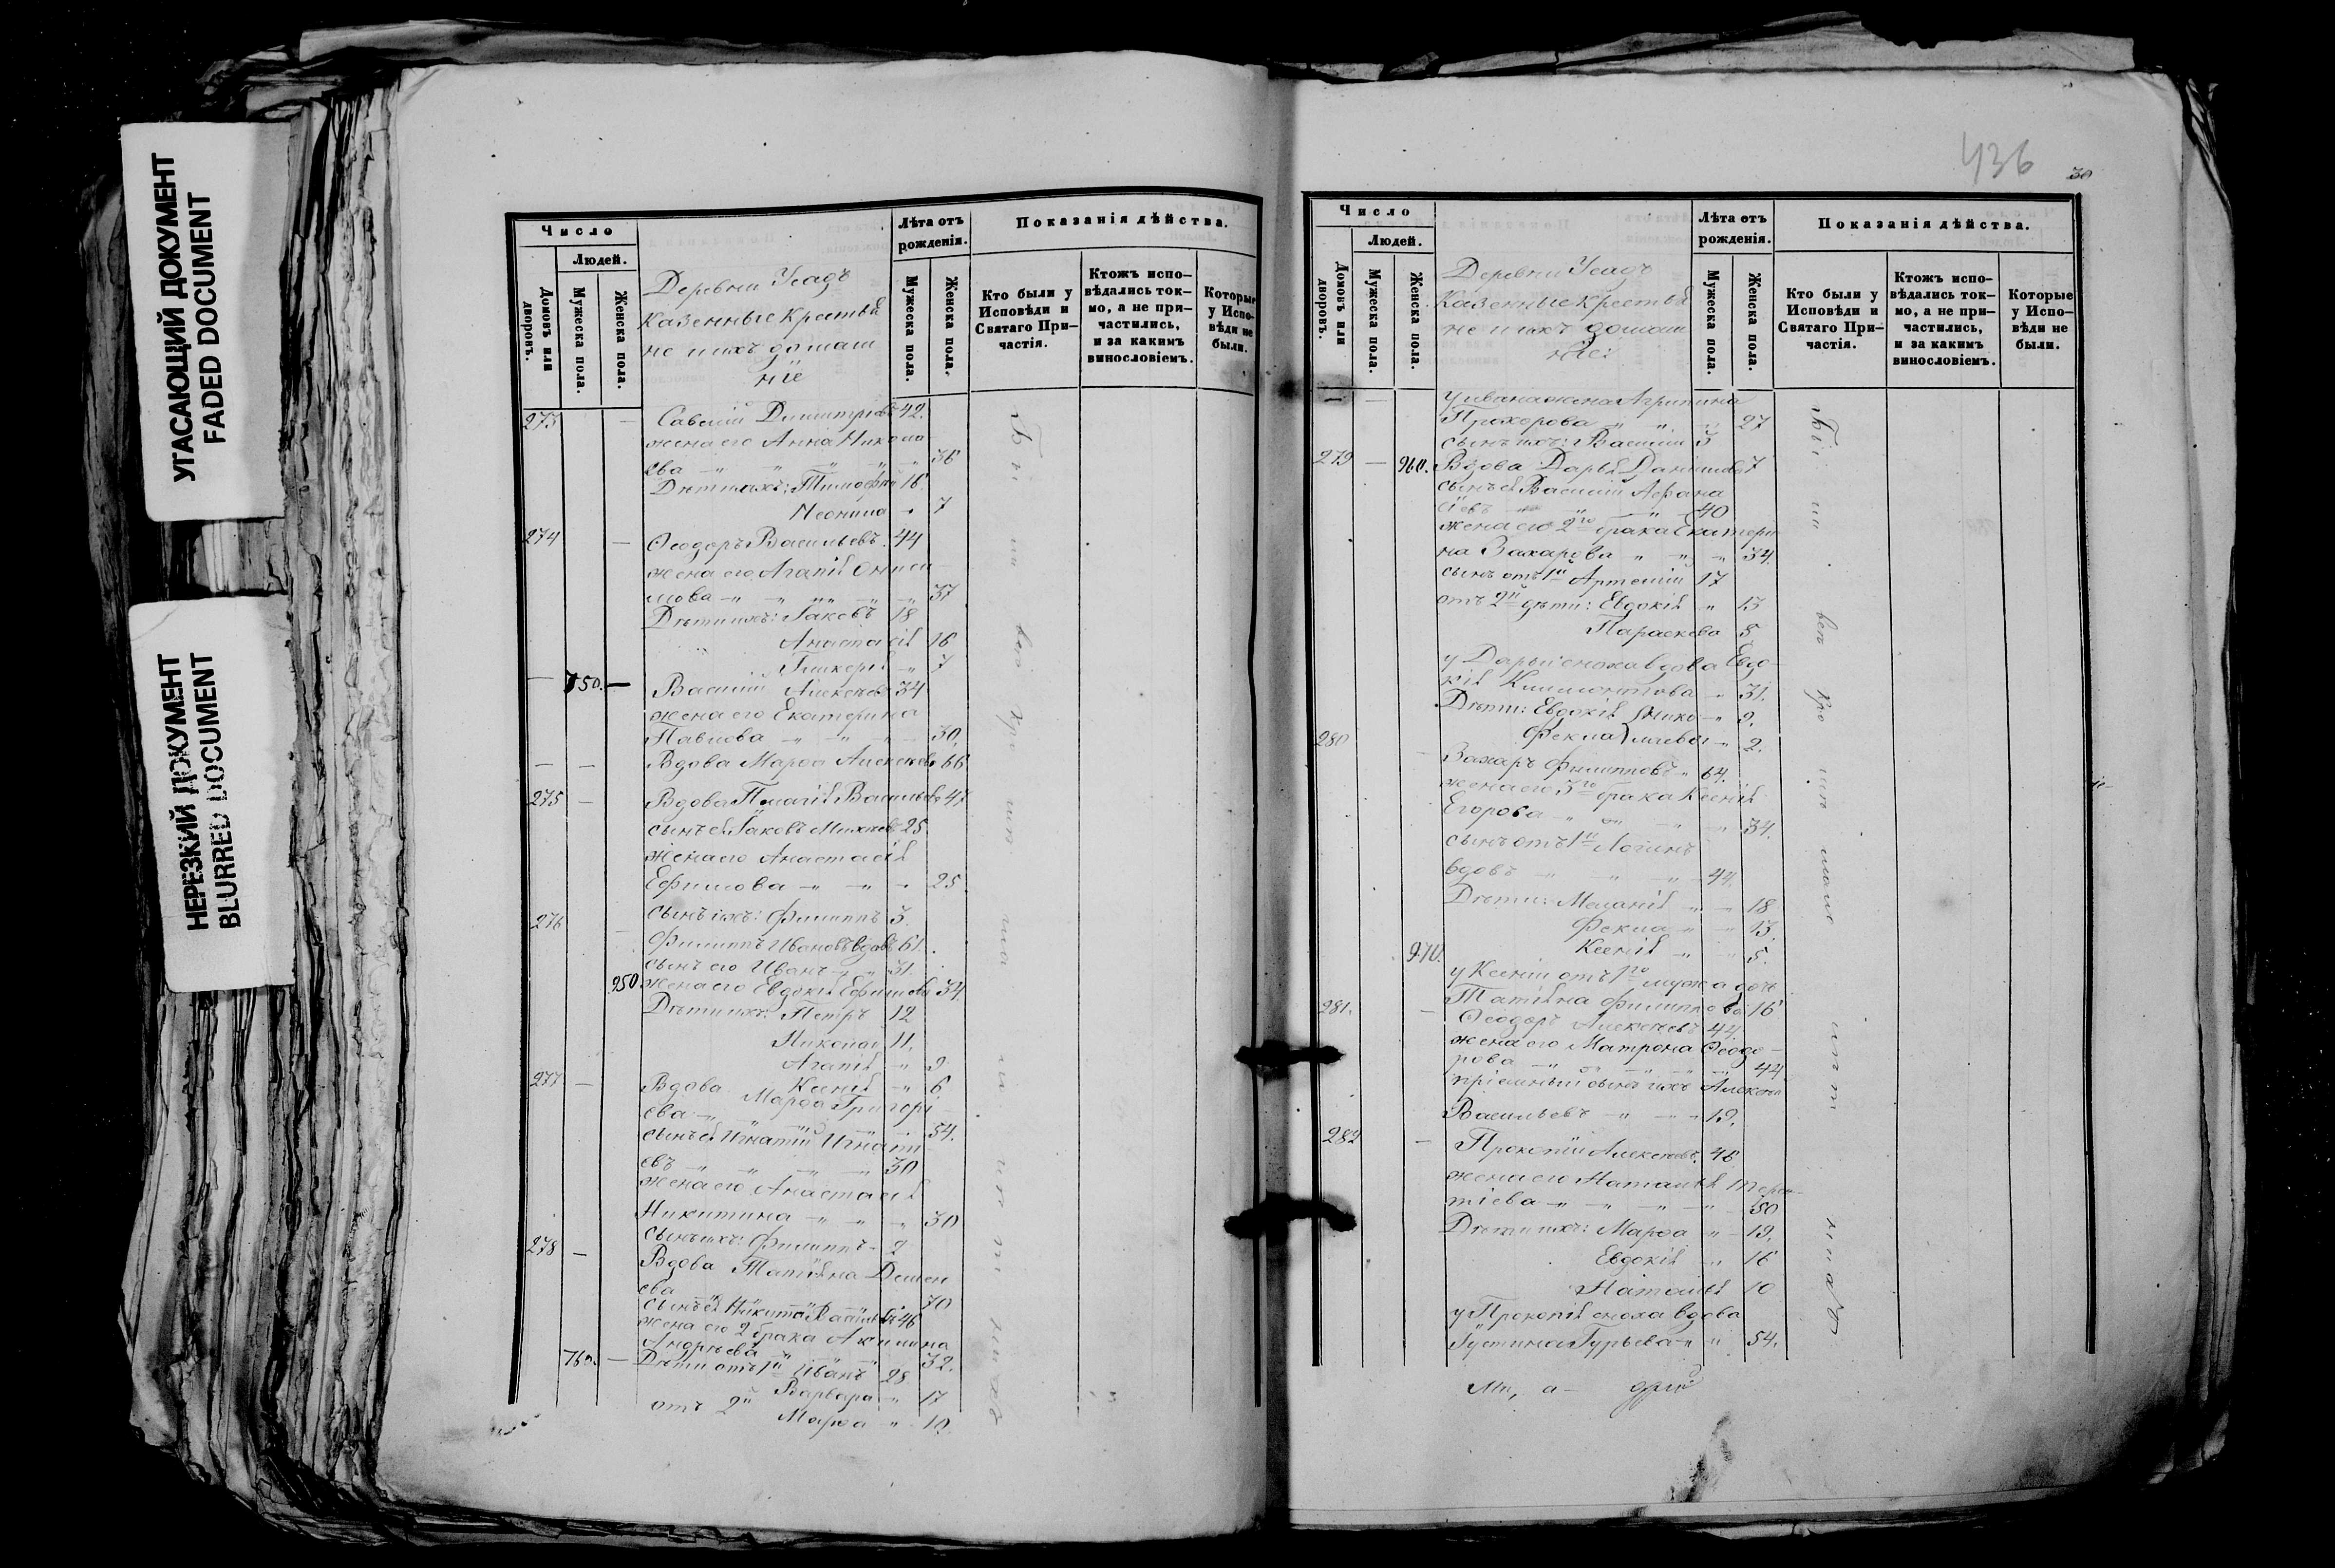 УГАСАЮЩИЙ ДОКУМЕНТ
FADED DOCUMENT
НЕРЕЗКИЙ ДОКУМЕНТ
BLURRED DOCUMENT
Число
Людей.
Домовъ или дворовъ.
Мужеска пола.
Женска пола.
Лѣта отъ рожденія.
Мужеска пола.
Женска пола.
Показанія дѣйства.
Кто были у Исповѣди и Святаго Причастія.
Ктожъ исповѣдались токмо, а не причастились, и за какимъ винословіемъ.
Которые у Исповѣди не были.
Деревни Усадъ
казенные крестья
не и ихъ домаш
ніе
273 — Савелій Димитріевъ 42.
жена его Анна Никола
ева 36
Дѣти ихъ: Тимофей 16
Неонила 7
274 — Ѳеодоръ Васильевъ 44
жена его Агапія Ониси
мова 37
Дѣти ихъ: Іаковъ 18
Анастасія 16
Гликерія 7
750. — Василій Алексѣевъ 34
жена его Екатерина
Павлова 30.
— — Вдова Марѳа Алексѣева 66
275 — Вдова Пелагія Васильева 47
сынъ ея Іаковъ Михеевъ 25
жена его Анастасія
Ефимова 25
сынъ ихъ: Филиппъ 3.
276 Филиппъ Ивановъ вдовъ 61.
сынъ его Иванъ 31.
950. жена его Евдокія Ефимова 34
Дѣти ихъ: Петръ 12
Николай 11.
Агапія 9
Ксенія 6
277 — Вдова Марѳа Григорі
ева 54.
сынъ ея Игнатій Игнать
евъ 30
жена его Анастасія
Никитина 30
сынъ ихъ: Филиппъ 2
278 — Вдова Татіяна Демен
ева 70
сынъ ея Никита 46
жена его 2 брака Акилина
Андреева 32.
760. — Дѣти отъ 1й Иванъ 28
Варвара 17
отъ 2й Марѳа 10.
436
30
Число
Людей.
Домовъ или дворовъ.
Мужеска пола.
Женска пола.
Лѣта отъ рожденія.
Мужеска пола.
Женска пола.
Показанія дѣйства.
Кто были у Исповѣди и Святаго Причастія.
Ктожъ исповѣдались токмо, а не причастились, и за какимъ винословіемъ.
Которые у Исповѣди не были.
Деревни Усадъ
Казенные крестья
не и ихъ домаш
ніе:
у ивана жена Агрипина
Прохорова 27
сынъ ихъ: Василій 3
279 — 960. Вдова Дарья Данилова
сынъ ея Василій Афана
сіевъ 40
жена его 2го брака Екатери
на Захарова 34.
сынъ отъ 1й Артемій 17
отъ 2й дѣти: Евдокія 13
Параскева 5.
у Дарьи сноха вдова Евдо
кія Климонтова 31.
Дѣти: Евдокія Нико 9.
Фекла лаевы 2.
280 Захаръ Филипповъ 64.
жена его 3го брака Ксенія
Егорова 34.
сынъ отъ 1й Логинъ
вдовъ 44.
Дѣти: Меланія 18
Фекла 13.
970. Ксенія 5.
у Ксеніи отъ 1го мужа дочь
Татіяна Филиппова 16
281. — Ѳеодоръ Алексѣевъ 44.
жена его Матрона Ѳеодо
рова 44
пріемный сынъ ихъ Алексѣй
Васильевъ 19.
282 — Прокопій Алексѣевъ. 46
жена его Наталія Терен
тіева 50
Дѣти ихъ: Марѳа 19.
Евдокія 16
Наталія 10
у Прокопія сноха вдова
Іустина Гурьева 54.